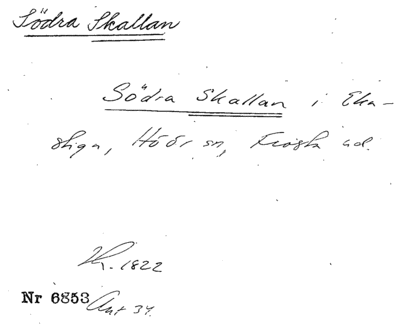 Södra Skallan
Södra Skallan i Eka-
stiga, Höör sn, Frosta hd.
1822
Nr 6853 Ant 34.